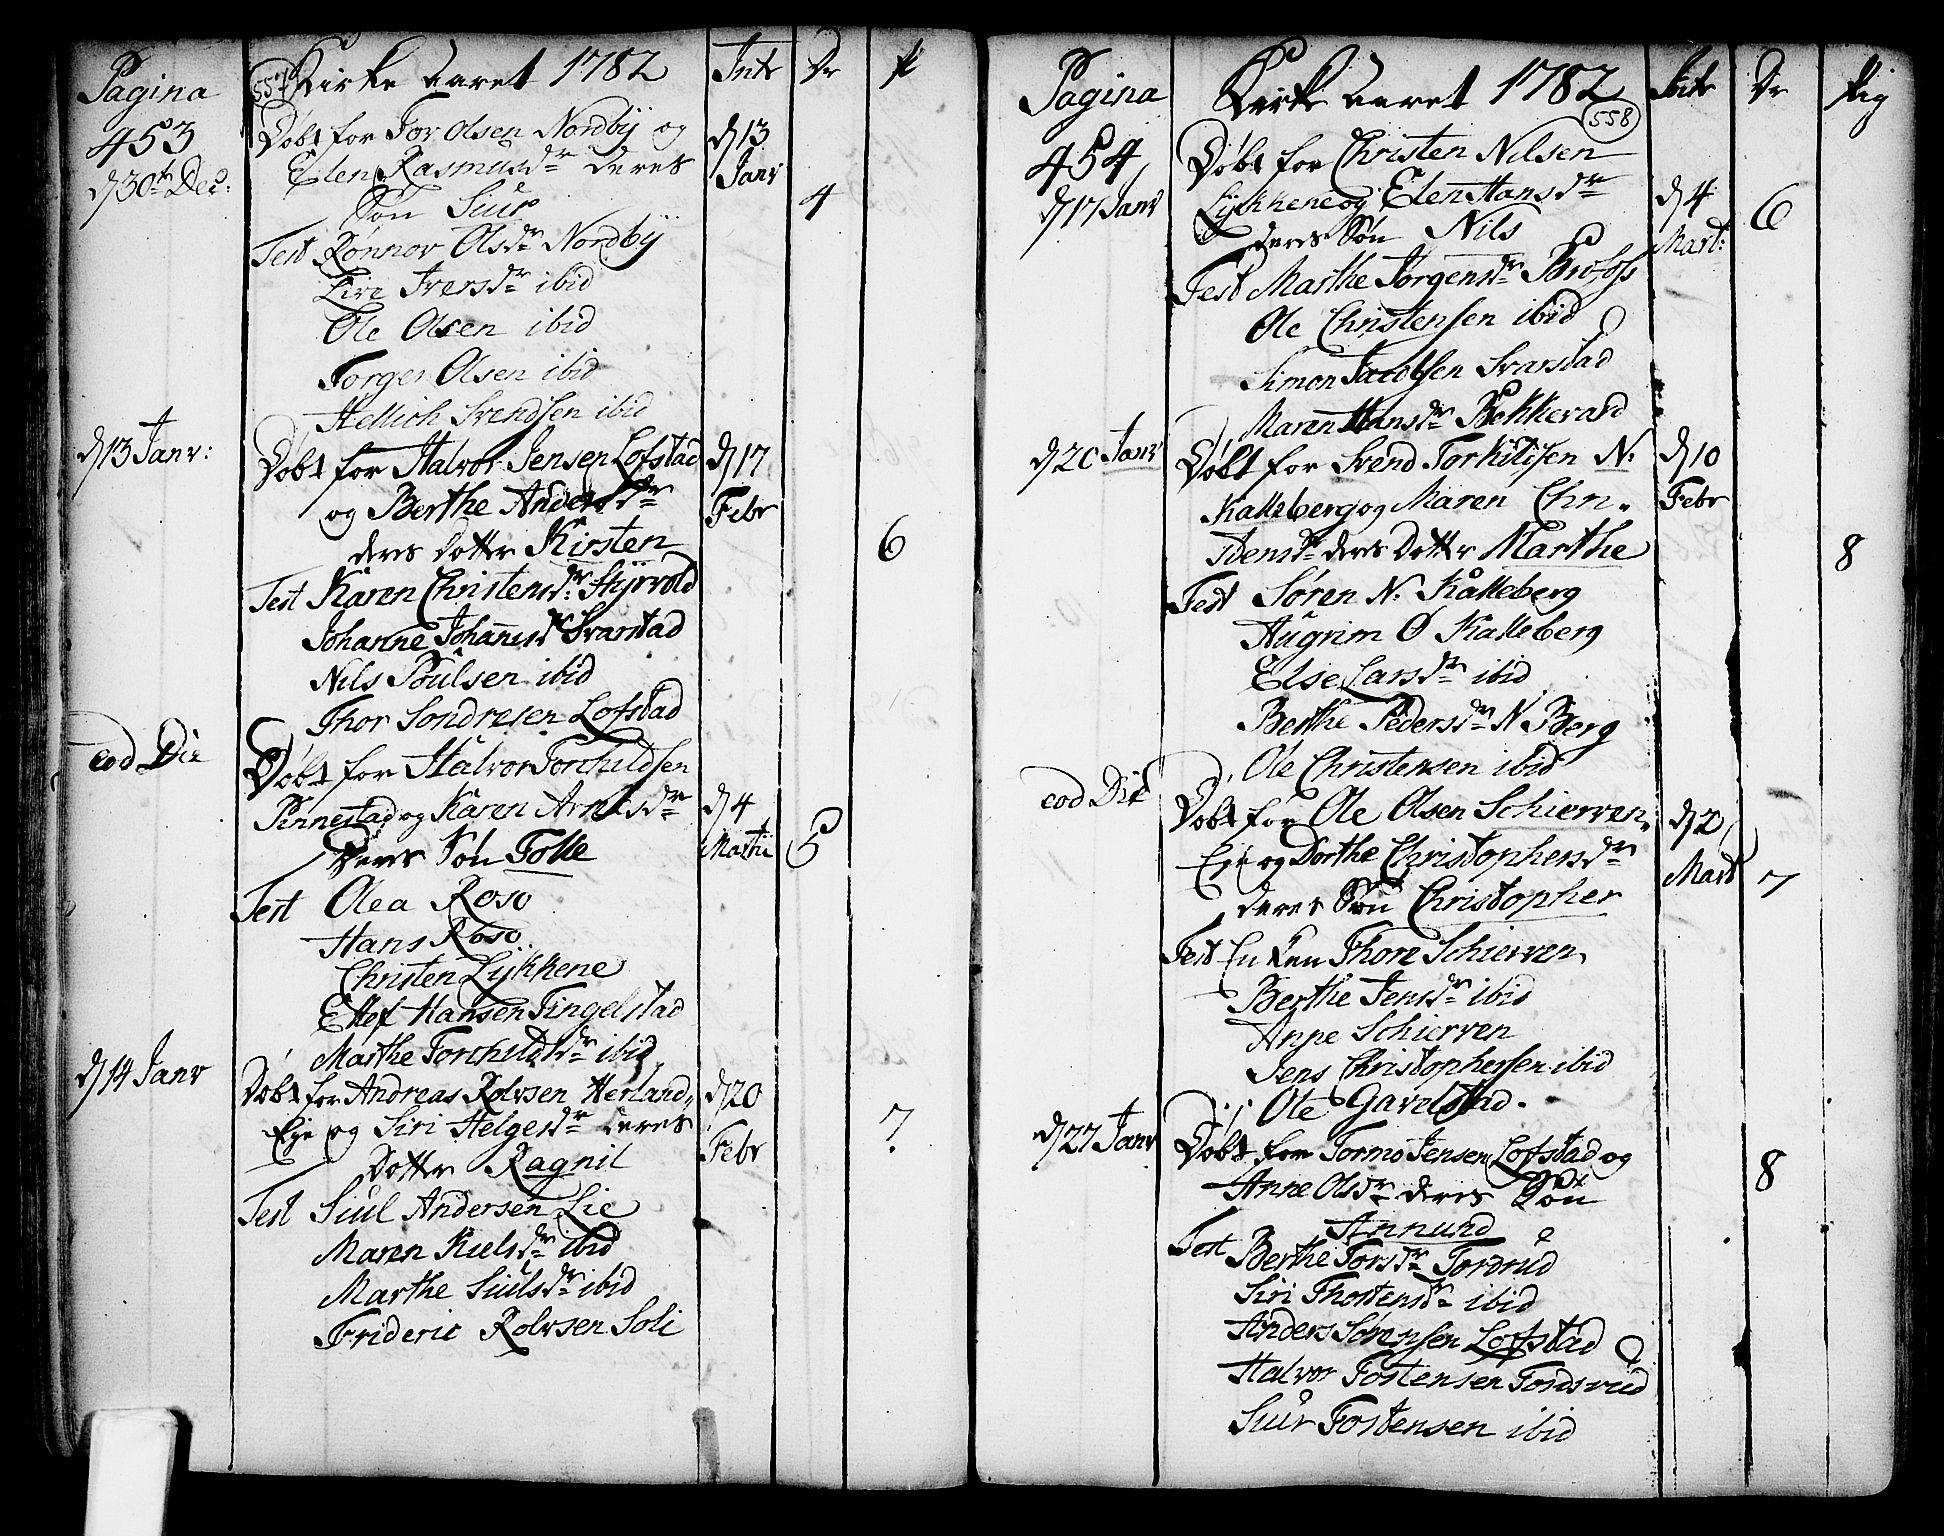 Pagina 557 Kirke Aaret 1782 Intr Dr
453
d 30t Dec:
Døbt for Tor Olsen Nordbÿ og d 13
Elen Rasmusdr deres Janr
Søn Siur 4
Test Rønnov Olsdr Nordbÿ
Live Iversdr ibid
Ole Olsen ibid
Torger Olsen ibid
Hellich Svendsen ibid
d 13 Janr: Døbt for Halvor Jensen Lofstad d 17
og Berthe Andersdr Febr
deres Dotter Kirsten 6
Test Karen Christensdr Hÿrvold
Johanne Johannisdr Svarstad
Nils Poulsen ibid
Thor Sondresen Lofstad
eod Die Døbt for Halvor Torchildsen
Pinnestad og Karen Arnesdr d 4
Deres Søn Tolle Martii 5
Test Olea Roso
Hans Roso
Christen Lÿkkene
Ellef Hansen Tingelstad
Marthe Torchildsdr ibid
d 14 Janr Døbt for Andreas Rolvsen Herland d 20
Eje og Siri Helgesdr deres Febr 7
Dotter Ragnil
Test Siul Andersen Lie
Maren Kielsdr ibid
Marthe Siulsdr ibid
Frideric Rolvsen Soli
Pagina Kirke Aaret 1782 558 Intr Dr Pig
454
d 17 Janr
Døbt for Christen Nilsen
Lÿkkene og Elen Hansdr d 4
deres Søn Nils Mart: 6
Test Marthe Jorgensdr Brofoss
Ole Christensen ibid
Simon Jacobsen Svarstad
Maren Hansdr Bekkevard
d 20 Janr Døbt for Svend Torkildsen N: d 10
Kalleberg og Maren Chri- Febr
stensdr deres Dotter Marthe 8
Test Søren N: Kalleberg
Augrim Ø Kalleberg
Else Larsdr ibid
Berthe Pedersdr N Berg
Ole Christensen ibid
eod Die Døbt for Ole Olsen Schierven- d 2
Eje og Dorthe Christophersdr Mart
deres Søn Christopher 7
Test Enken Thore Schierven
Berthe Jensdr ibid
Anne Schierven
Jens Christophersen ibid
Ole Gavelstad.
d 27 Janr Døbt for Tormo Jensen Lofstad og
Anne Olsdr deres Søn 8
Annund
Test Berthe Torsdr Tordrud
Siri Thostensdr ibid
Anders Sørensen Lofstad
Halvor Tostensen Tordsrud
Siur Tostensen ibid